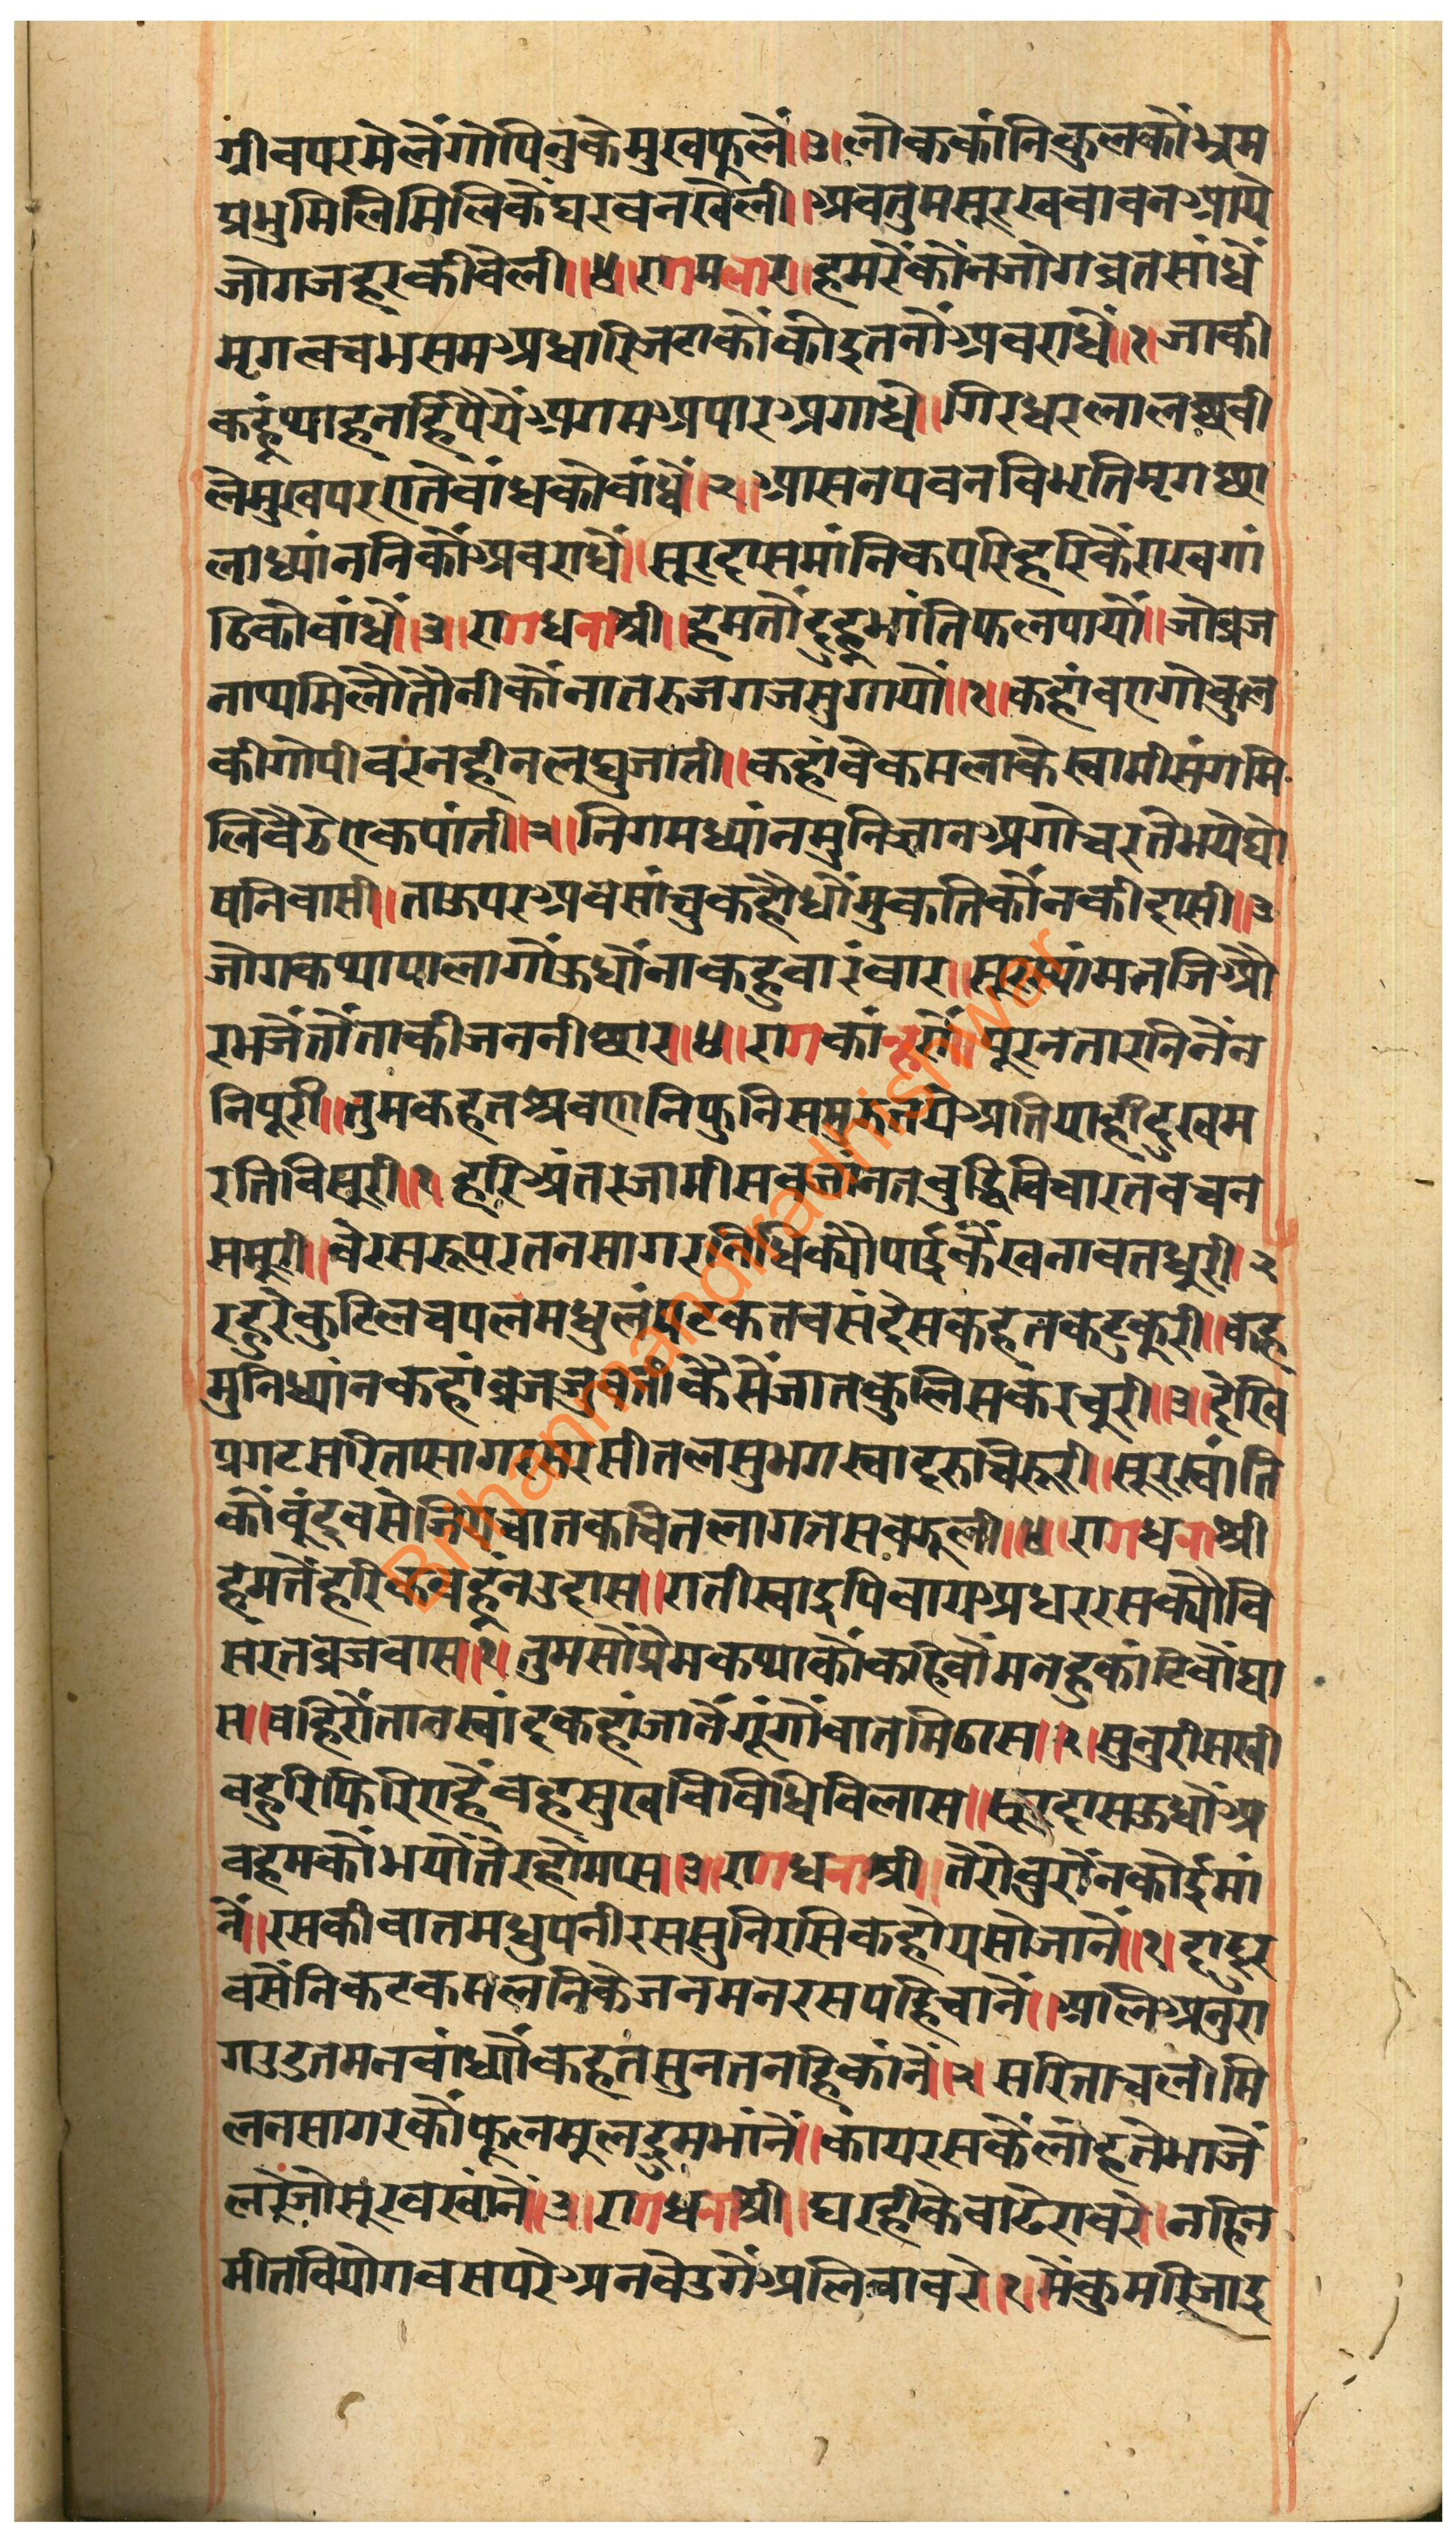 ग्रीवपरमेलैंगोपिनुकेमुखफूलैं॥३॥लोककांनिकुलकौंभ्रम
प्रभुमिलिमिलिकैघरवनखेली॥अवतुमसूरखवावनआये
जोगजहरकीवेली॥४॥रागमलार॥हमरेंकौंनजोगव्रतसांधैं
मृगत्वचभसमअधारिजटाकौंकोइतनौंअवराधैं॥१॥जाकी
कहूंथाहनहिंपैयेंअगमअपारअगाधे॥गिरधरलालछवी
लेमुखपरएतेवांधकोवांधैं॥२॥आसनपवनविभूतिमृगछा
लाध्यांननिकौंअवराधैं॥सूरदासमांनिकपरिहरिकैराखगां
ठिकोवांधैं॥३॥रागधनाश्री॥हमतौंदुहूभांतिफलपायौं॥जोव्रज
नाथमिलैंतौनीकौंनातरुजगजसुगायौं॥१॥कहांवएगोकुल
कीगोपीवरनहीनलघुजाती॥कहांवेकमलाकेस्वामीसंगमि
लिवैठेएकपांती॥२॥निगमध्यांनमुनिज्ञानअगोचरतेभयेघो
षनिवासी॥ताऊपरअवसांचुकहौधौंमुकतिकौंनकीदासी॥३
जोगकथापालागौंऊधौंनाकहुवारंवार॥सूरस्यांमतजिऔ
रभजैंतौंताकीजननीछार॥४॥रागकांन्हरौ॥पूरनतारनिनैंन
निपूरी॥तुमकहतश्रवणनिफुनिसमुझतयेअतियाहीदुखम
रतिविसूरी॥१॥हरिअंतरजामीसवजांनतवुद्धिविचारतवचन
समूरी॥वेरसरूपरतनसागरनिधिक्यौपाईकैंखनावतधूरी॥२
रहुरेकुटिलचपलमधुलंपटकतवसंदेसकहतकटुकूरी॥कह
मुनिध्यांनकहांव्रजजुवतीकैसैंजातकुलिसकरचूरी॥३॥देखि
प्रगटसरितासागरसरसीतलसुभगस्वादरुचिरूरी॥सूरस्वांति
कौंवूंदवसेजियचातकचितलागतसवझूली॥४॥रागधनाश्री
हमतेंहरिकवहूंनउदास॥रातीस्वाइपिवायअधररसक्यौवि
सरतव्रजवास॥१॥तुमसौंप्रेमकथाकौकहिवौंमनहुकांटिवौंघा
स॥वहिरौंतानस्वांदकहांजानैंगूंगौंवातमिठास॥२॥सुनुरीसखी
वहुरिफिरिएहैंवहसुखविविधिविलास॥सूरदासऊधौंअ
वहमकौंभयौंतेरहौंमास॥३॥रागधनाश्री॥तेरौवुरौंनकोईमां
नैं॥रसकीवातमधुपनीरससुनिरसिकहोयसोजानैं॥१॥दादुर
वसैंनिकटकमलनिकेजनमनरसपहिचानैं॥अलिअनुरा
गउडतमनवांध्यौंकहतसुनतनहिकांनैं॥२॥सरिताचलीमि
लनसागरकौंफूलमूलद्रुमभांनैं॥कायरसकैंलोहतेभाजैं
लरेंजोसूरवखांनैं॥३॥रागधनाश्री॥घरहीकेवाढेरावरे॥नहिन
मीतवियोगवसपरेअनवेउगेअलिवावरे॥१॥मैंकुमरिजाइ